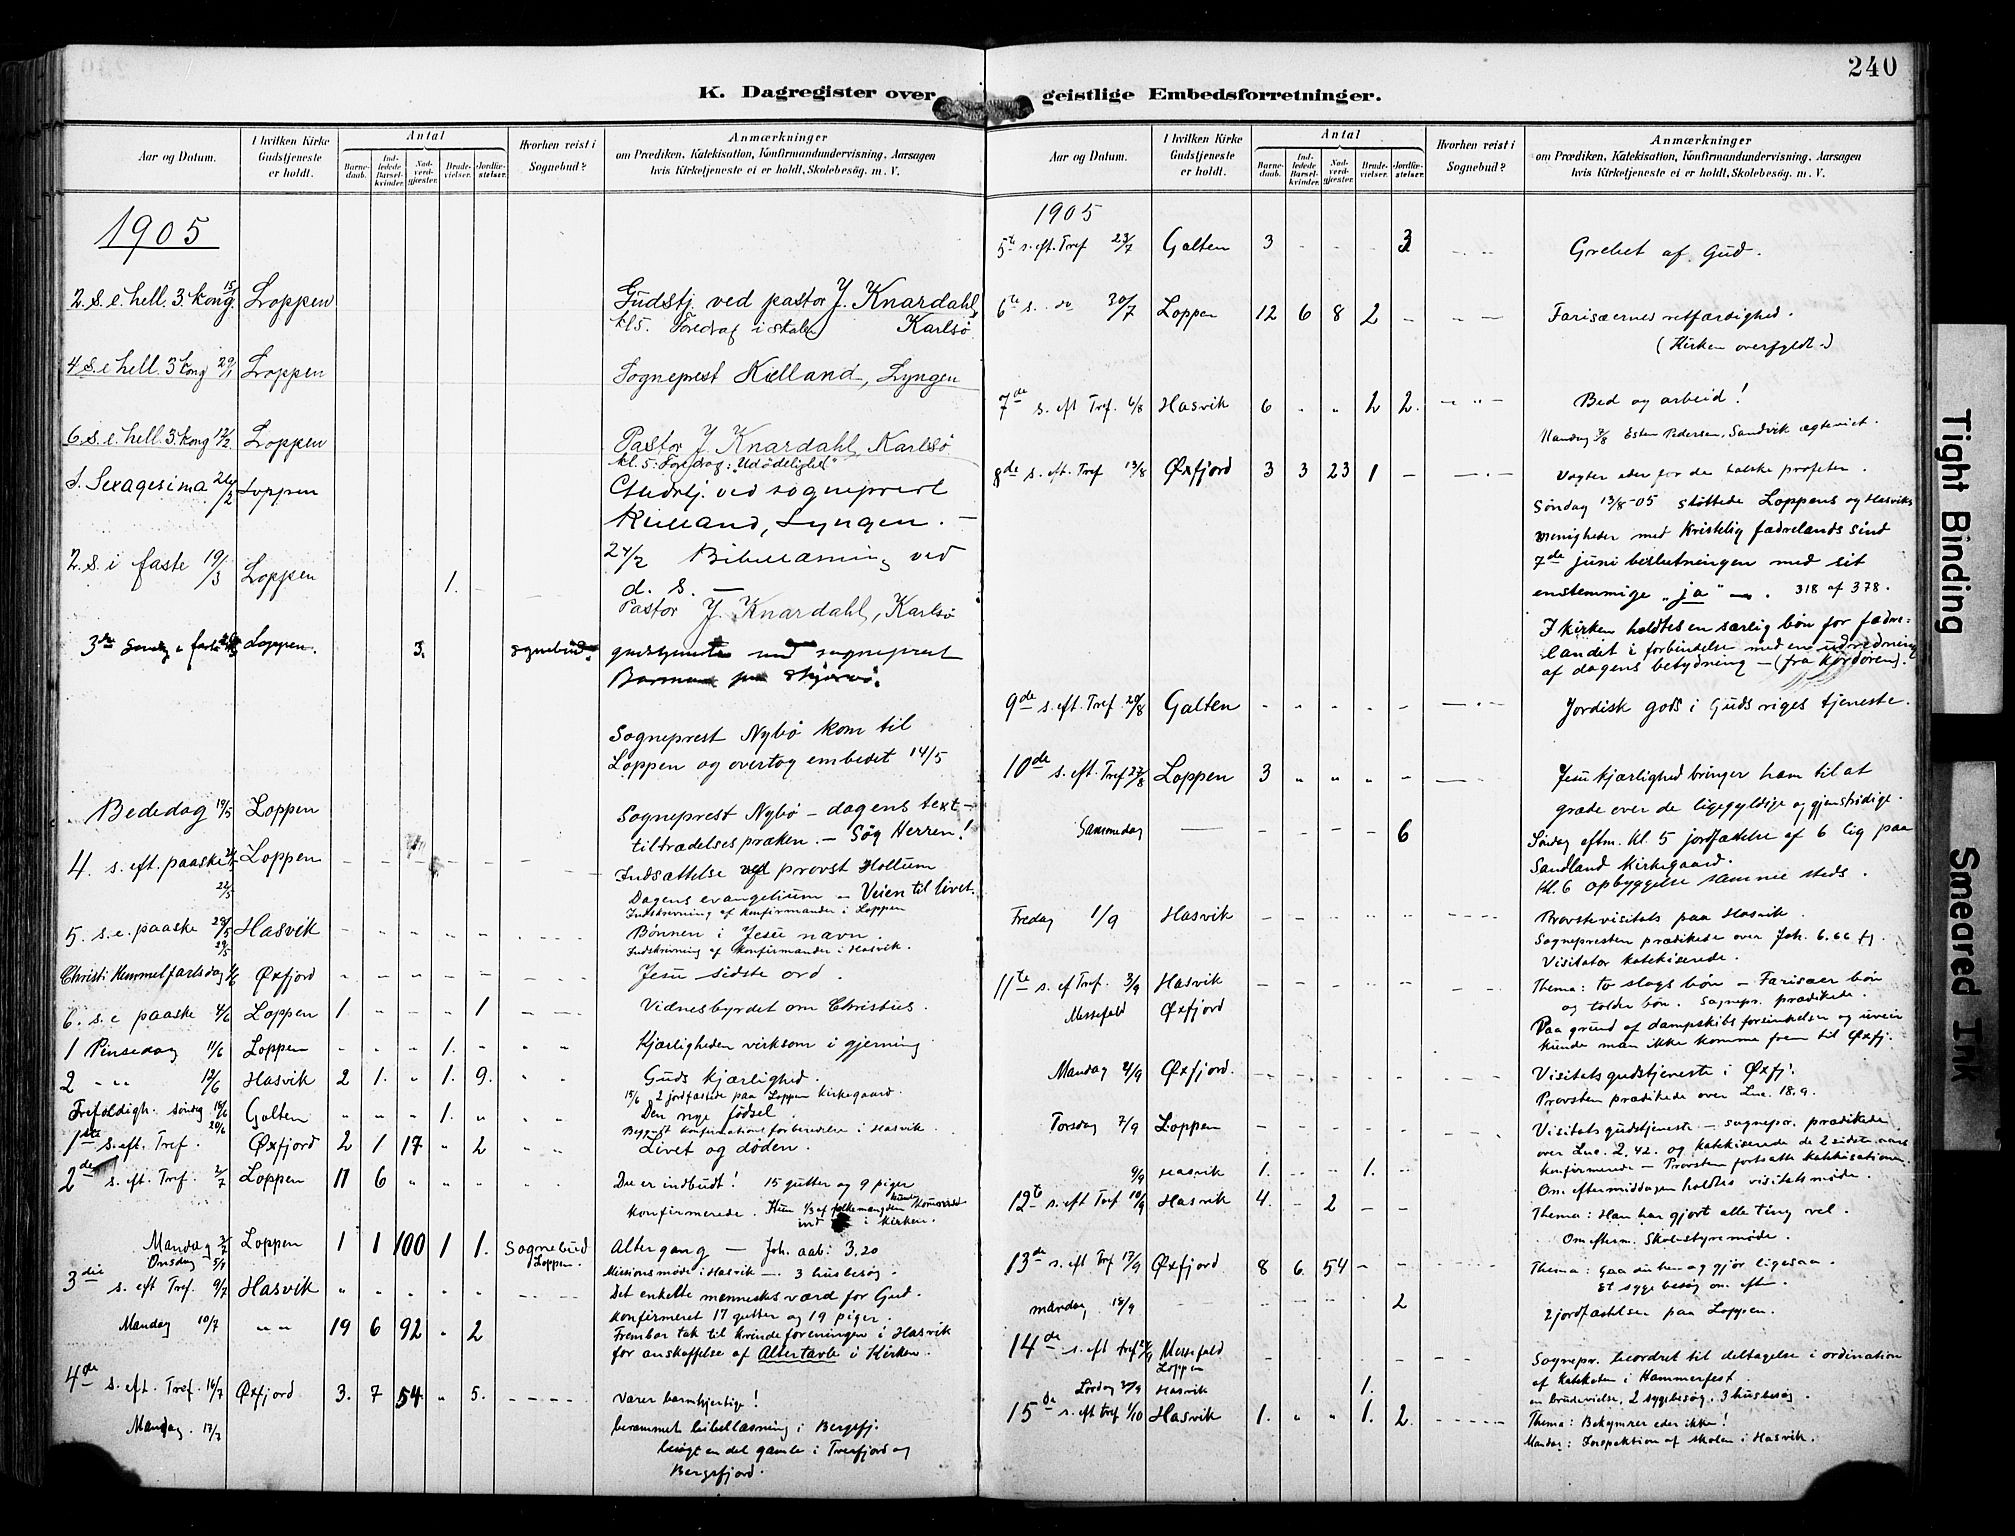 240
K. Dagregister over geistlige Embedsforretninger.
Aar og Datum.
I hvilken Kirke Gudstjeneste er holdt.
Antal
Barnedaab.
Indledede Barselkvinder.
Nadverdgjæster.
Brudevielser.
Jordfæstelser.
Hvorhen reist i Sognebud?
Anmærkninger
om Prædiken, Katekisation, Konfirmandundervisning, Aarsagen
hvis Kirketjeneste ei er holdt, Skolebesøg. m. V.
1905
2. s. e. hell. 3 kong. 15/1 Loppen Gudstj. ved pastor J. Knardahl,
kl 5. Foredrag i skolen Karlsö
4 s. e hell. 3 kong 29/1 Loppen Sogneprest Kielland, Lyngen
6. s. e. hell. 3 kong 12/2 Loppen Pastor J. Knardahl, Karlsö
kl. 5: Foredrag: "Udödelighet"
S. Sexagesima 26/2 Loppen Gudstj. ved sogneprest
Kielland, Lyngen. —
2. s. i faste 19/3 Loppen 1. 27/2 Bibellæsning ved
d. s. —
Pastor J. Knardahl, Karlsö
3de Søndag i faste Loppen. 3. sognebud. gudstjeneste ved sogneprest
Skjærvö.
Sogneprest Nybö kom til
Loppen og overtog embedet 14/5
Bededag 19/5 Loppen Sogneprest Nybö — dagens text —
tiltrædelsespræken. — Søg Herren!
4. s. eft. paaske 21/5 Loppen Indsættelse ved provst Hollum
Dagens evangelium — Veien til livet.
22/5 Indskrivning af konfirmander i Loppen
5. s. e. paaske 28/5 Hasvik Bønnen i Jesu navn.
29/5 Indskrivning af konfirmander i Hasvik.
Christi Himmelfartsdag 1/6 Øxfjord Jesu sidste ord.
6. s. e paaske 4/6 Loppen 1 1 Vidnesbyrdet om Christus.
1 Pinsedag 11/6 Loppen 1. Kjærligheden virksom i gjerning
2 " " 12/6 Hasvik 2 1. " 1. 9. Guds kjærlighed.
15/6 2 jordfæstede paa Loppen kirkegaard.
Trefoldigh. søndag 18/6 Galten 1. Den nye fødsel
20/6 Begyndt konfirmationsforberedelse i Hasvik.
1ste s. eft. Tref. Øxfjord 2 1 17 " 2 Livet og døden.
2de s. eft. Tref. 2/7 Loppen 11 6 Du er indbudt! 15 gutter og 9 piger
konfirmerede. Kun 1/3 af folkemængden kunde komme
ind i kirken.
Mandag 3/7 Loppen 1 1 100 1 1. Sognebud Altergang — Joh. aab: 3.20
Onsdag 5/7 Loppen. Missionsmøde i Hasvik —. 3 husbesøg.
3die s. eft Tref. 9/7 Hasvik Det enkelte menneskes værd for Gud.
konfirmeret 17 gutter og 19 piger.
Mandag 10/7 " " 19 6 92 " 2 Frembar tak til kvindeforeningen i Hasvik
for anskaffelse af Altertavle i Kirken.
4de s. eft. Tref. 16/7 Øxfjord 3. 7 54 " 5. Værer barmhjertige!
Mandag. 17/7 berammet bibellæsning i Bergsfj.
besøgt en del gamle i Tverfjord og
Bergsfjord.
Aar og Datum.
I hvilken Kirke Gudstjeneste er holdt.
Antal
Barnedaab.
Indledede Barselkvinder.
Nadverdgjæster.
Brudevielser.
Jordfæstelser.
Hvorhen reist i Sognebud?
Anmærkninger
om Prædiken, Katekisation, Konfirmandundervisning, Aarsagen
hvis Kirketjeneste ei er holdt, Skolebesøg. m. V.
1905
5te s. eft. Tref 23/7 Galten 3 3 Grebet af Gud.
6te s. do 30/7 Loppen 12 6 8 2 Farisæernes retfærdighed.
(Kirken overfyldt.)
7de s. eft Tref. 6/8 Hasvik 6 2 2. Bed og arbeid!
Mandag 7/8 Esten Pedersen, Sandvik ægteviet.
8de s. eft. Tref 13/8 Øxfjord 3 3 23 1 Vogter eder for de falske profeter.
Søndag 13/8-05 støttede Loppens og Hasviks
menigheder med kristelig fædrelandssind
7de juni beslutningen med sit
enstemmige "ja" —. 318 af 378.
I kirken holdtes en særlig bøn for fædre-
landet i forbindelse med en udredning
af dagens betydning — (fra kordøren).
9de s. eft. Tref. 20/8 Galten Jordisk gods i Guds riges tjeneste.
10de s. eft. Tref 27/8 Loppen 3 Jesu kjærlighed bringer ham til at
græde over de ligegyldige og gjenstridige.
Sammedag 6 Søndag eftm. kl. 5 jordfæstelse af 6 lig paa
Sandland kirkegaard.
Kl. 6 opbyggelse samme steds.
Fredag 1/9 Hasvik Provstevisitats paa Hasvik.
Sognepresten prædikede over Joh. 6.66 fg.
Visitator katekiserede.
11te s. ef Tref. 3/9 Hasvik Thema: to slags bøn — Farisæer bøn
og tolder bøn. Sognepr. prædikede.
Messefald Øxfjord Paa grund af dampskibsforsinkelse og uveir
kunde man ikke komme frem til Øxfj.
Mandag 4/9 Øxfjord. Visitatsgudstjeneste i Øxfj.
Provsten prædikede over Luc. 18.9.
Torsdag 7/9 Loppen Visitatsgudstjeneste — sognepr. prædikede
over Luc. 2.42. og katekiserede de 2 sidste aars
konfirmerede — Provsten fortsatte katekisationen.
9/9 Hasvik 1. 1. Om eftermiddagen holdtes visitatsmøde.
12te s. eft Tref 10/9 Hasvik 4. - 2 Thema: Han har gjort alle ting vel.
Om efterm. Skolestyremøde.
13de s. eft. Tref 17/9 Øxfjord 8 6 54 Thema: Gaa du hen og gjør ligesaa.
Et sygebesøg om eftm.
mandag 18/9 2 2 jordfæstelser paa Loppen.
14de s. eft tref 24/9 Messefald
Loppen Sognepr. beordret til deltagelse i ordination
af kateketen i Hammerfest.
Lørdag 30/9 Hasvik 1. en brudevielse, 2 sygebesøg, 3 husbesøg.
15de s. eft tref 1/10 Hasvik 1. 1. 2. Thema: Bekymrer eder ikke!
Mandag: Inspektion af skolen i Hasvik.
Tight Binding
Smeared Ink